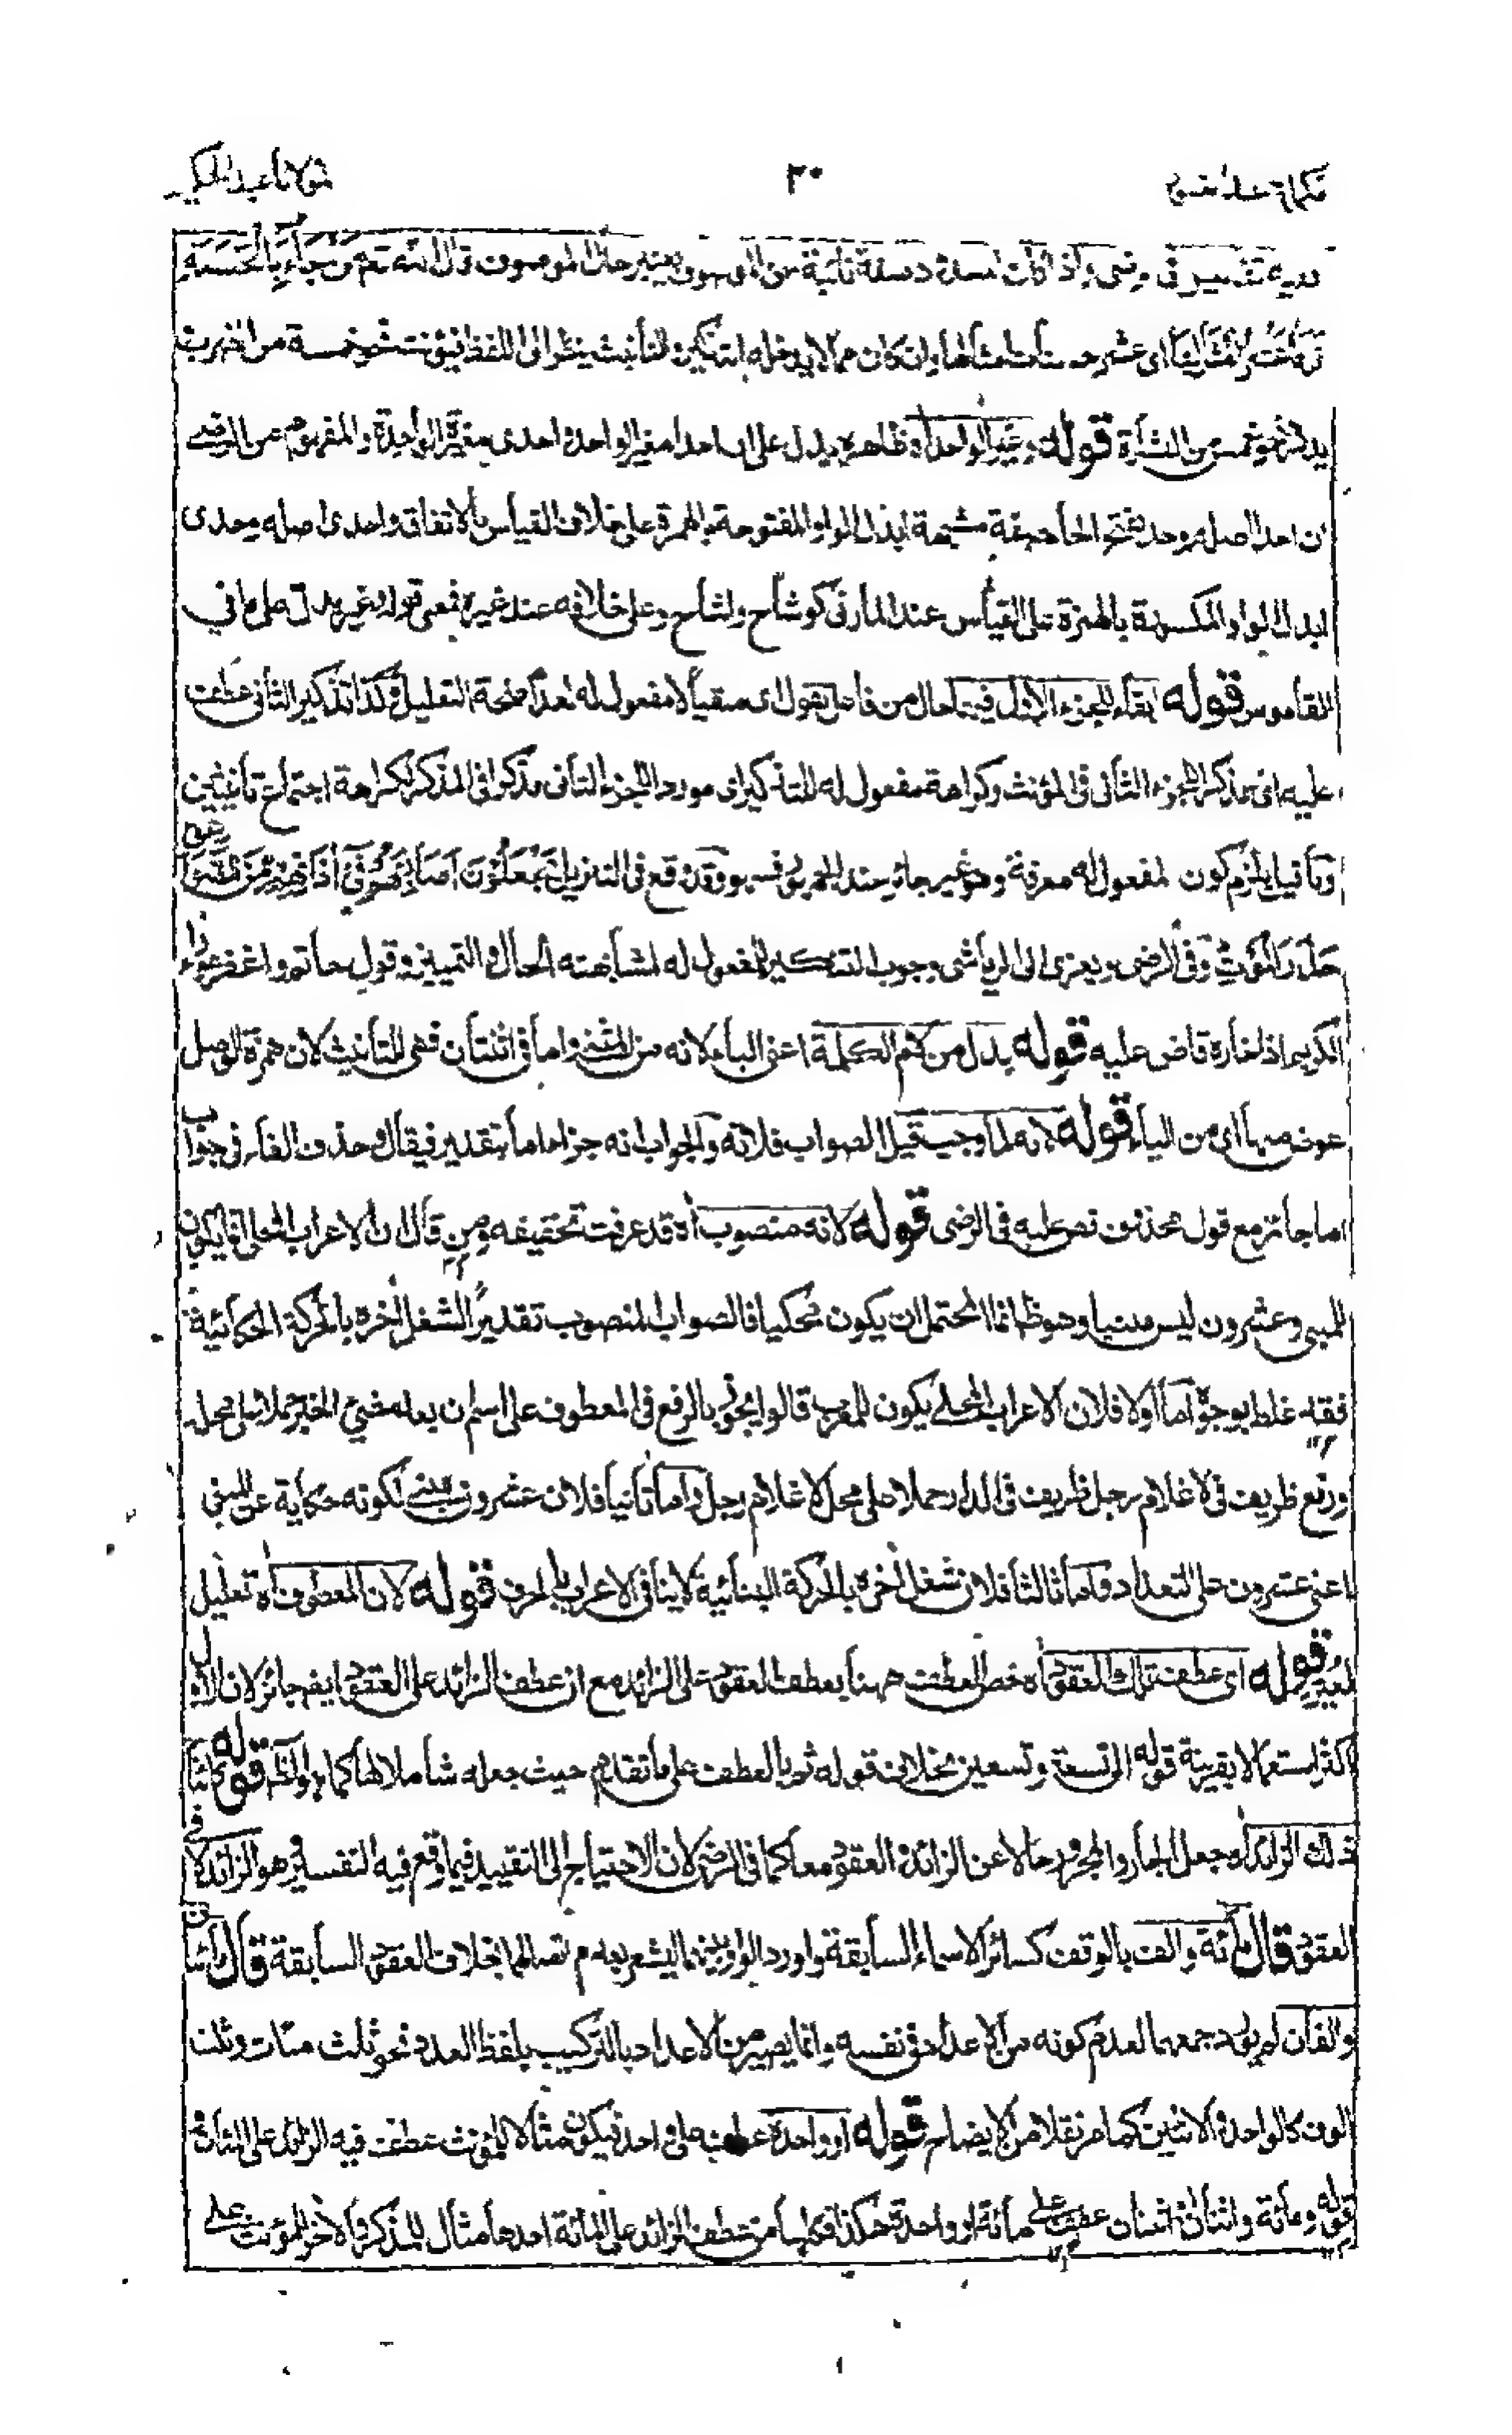 تكملة عبد الغفور ٣٠ مولانا عبد الحكيم
واذا كانت صفة نائبة عن الموصوف يعتبر حال الموصوف قال الله تعم من جاء بالحسنة
عشر امثالها اى عشر حسنات امثالها وان كان مما لا يدخله التأنيث ينظر الى اللفظ فيؤنث نحو خمسة من الضرب
قوله وغير الواحد اه ظاهره يدل على ان احدا مغير الواحد واحدى مغيرة الواحدة والمفهوم من الرضى
ان احدا اصله وحد بفتح الحاء صفة مشبهة ابدل الواو المفتوحة بالهمزة على خلاف القياس بالاتفاق واحدى اصله وحدى
ابدل الواو المكسورة بالهمزة على القياس عند المازنى كوشاح واشاح وعلى خلافه عند غيره فمعنى قوله وغير بدل على ما فى
القاموس قوله ابقاء للجزء الاول فيهما حال من فاعل يقول اى مبقيا لا مفعول له لعدم صحة التعليل وكذا تذكير الثانى عطف
عليه اى مذكر الجزء الثانى فى المؤنث وكراهة مفعول له للتذكير اى مورد الجزء الثانى مذكرا فى المذكر لكراهة اجتماع تأنيثين
وما قيل يلزم كون المفعول له معرفة وهو غير جائز عند الجمهور وقد وقع فى التنزيل يجعلون اصابعهم فى آذانهم من الصواعق
حذر الموت وفى الرضى ويعزى الى الرياشى وجوب التنكير للمفعول له لمشابهته الحال والتمييز وقول حاتم واغفر عوراء
الكريم ادخاره قاض عليه قوله بدل من لام الكلمة اعنى الياء لانه من الثنى واما فى اثنتان فهى للتأنيث لان همزة الوصل
عوض منها اى من الياء قوله لانه لما وجب قيل الصواب فلانه والجواب انه جزاء اما بتقدير فيقال وحذف الفاء فى جواب
اما جائز مع قول محذوف نص عليه فى الرضى قوله لانه منصوب اه قد عرفت تحقيقه ومن قال ان الاعراب المحلى انما يكون
للمبنى وعشرون ليس مبنيا وهو ظ انما المحتمل ان يكون محكيا فالصواب المنصوب تقديرا لشغل آخره بالحركة الحكائية
فقد غلط بوجوه اما اولا فلان الاعراب المحلى يكون للمعرب قالوا يجوز بالرفع فى المعطوف على اسم ان بعد مضى الخبر حملا على محله
ورفع ظريف فى لا غلام رجل ظريف فى الدار حملا على محل لا غلام رجل واما ثانيا فلان عشرون مبنى لكونه حكاية عن المبنى
اعنى عشرون على التعداد واما ثالثا فلان شغل آخره بالحركة البنائية لا ينافى الاعراب بالحرف قوله لان المعطوف اه تعليل
قوله اى عطف تلك العقود اه خص العطف ههنا بعطف العقود على الزائد مع ان عطف الزائد على العقود ايضم جائز لان الاول
اكثر استعمالا بقرينة قوله الى تسعة وتسعين بخلاف قوله ثم بالعطف على ما تقدم حيث جعله شاملا لهما كما هو الظم قوله كائنا
ذلك الزائد اه جعل الجار والمجرور حالا عن الزائد والعقود معا كما فى الرضى لان الاحتياج الى التقييد فيما وقع فيه التفسير هو الزائد لا فى
العقود قال مائة والف بالوقف كسائر الاسماء السابقة واورد الواو بينهما ليشعر بعدم اتصالهما بخلاف العقود السابقة قال مائتان
والفان لم يورد جمعهما لعدم كونه من الاعداد فى نفسه وانما يصير من الاعداد بالتركيب بلفظ العدد نحو ثلث مئات وثلث
الوف كالواحد والاثنين كما مر نقلا من الايضاح قوله او واحدة عطف على واحد فيكون مثالا للمؤنث عطف فيه الزائد على المائة
قوله ومائة واثنان او اثنتان عطف على مائة او واحدة هكذا فكلها من عطف الزائد على المائة احدهما مثال للمذكر والآخر للمؤنث على